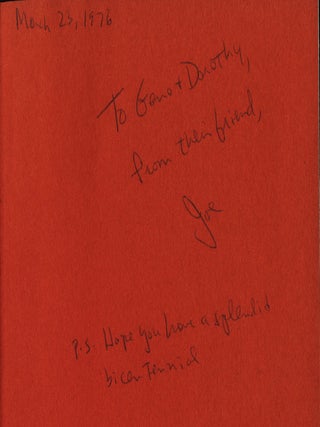 March 23, 1976
To Geno + Dorothy,
from their friend,
Joe
P.S. Hope you have a splendid
bicentennial